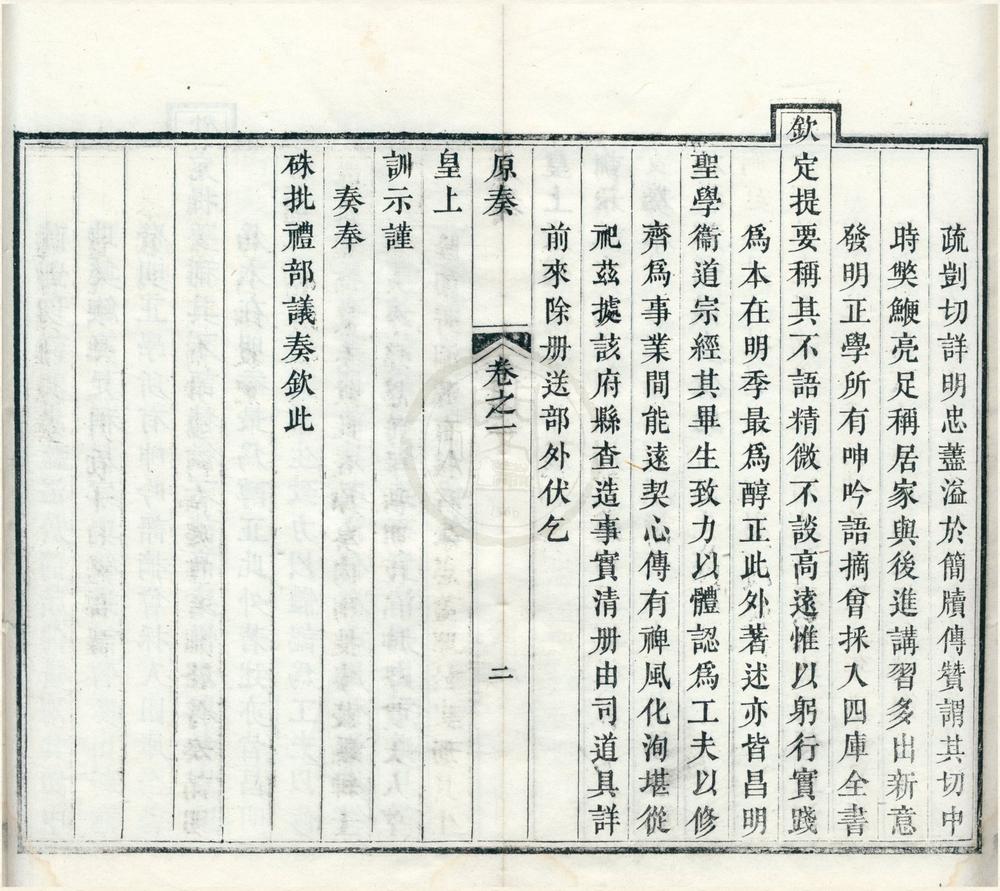 疏剴切詳明忠藎溢於簡牘傳贊謂其切中
時獘鯁亮足稱居家與後進講習多出新意
發明正學所有呻吟語摘曾採入四庫全書
欽定提要稱其不語精微不談高遠惟以躬行實踐
爲本在明季最爲醇正此外著述亦皆昌明
聖學衞道宗經其畢生致力以體認爲工夫以修
齊爲事業間能遠契心傳有裨風化洵堪從
祀茲據該府縣查造事實清册由司道具詳
前來除册送部外伏乞
原奏
卷之一
二
皇上
訓示謹
奏奉
硃批禮部議奏欽此